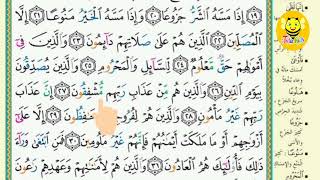 ﴿١٩﴾ وَإِذَا مَسَّهُ الشَّرُّ جَزُوعًا ﴿٢٠﴾ وَإِذَا مَسَّهُ الْخَيْرُ مَنُوعًا ﴿٢١﴾ إِلَّا
الْمُصَلِّينَ ﴿٢٢﴾ الَّذِينَ هُمْ عَلَىٰ صَلَاتِهِمْ دَائِمُونَ ﴿٢٣﴾ وَالَّذِينَ فِي
أَمْوَالِهِمْ حَقٌّ مَعْلُومٌ ﴿٢٤﴾ لِلسَّائِلِ وَالْمَحْرُومِ ﴿٢٥﴾ وَالَّذِينَ يُصَدِّقُونَ
بِيَوْمِ الدِّينِ ﴿٢٦﴾ وَالَّذِينَ هُمْ مِنْ عَذَابِ رَبِّهِمْ مُشْفِقُونَ ﴿٢٧﴾ إِنَّ عَذَابَ
رَبِّهِمْ غَيْرُ مَأْمُونٍ ﴿٢٨﴾ وَالَّذِينَ هُمْ لِفُرُوجِهِمْ حَافِظُونَ ﴿٢٩﴾ إِلَّا عَلَىٰ
أَزْوَاجِهِمْ أَوْ مَا مَلَكَتْ أَيْمَانُهُمْ فَإِنَّهُمْ غَيْرُ مَلُومِينَ ﴿٣٠﴾ فَمَنِ ابْتَغَىٰ وَرَاءَ
ذَٰلِكَ فَأُولَٰئِكَ هُمُ الْعَادُونَ ﴿٣١﴾ وَالَّذِينَ هُمْ لِأَمَانَاتِهِمْ وَعَهْدِهِمْ رَاعُونَ